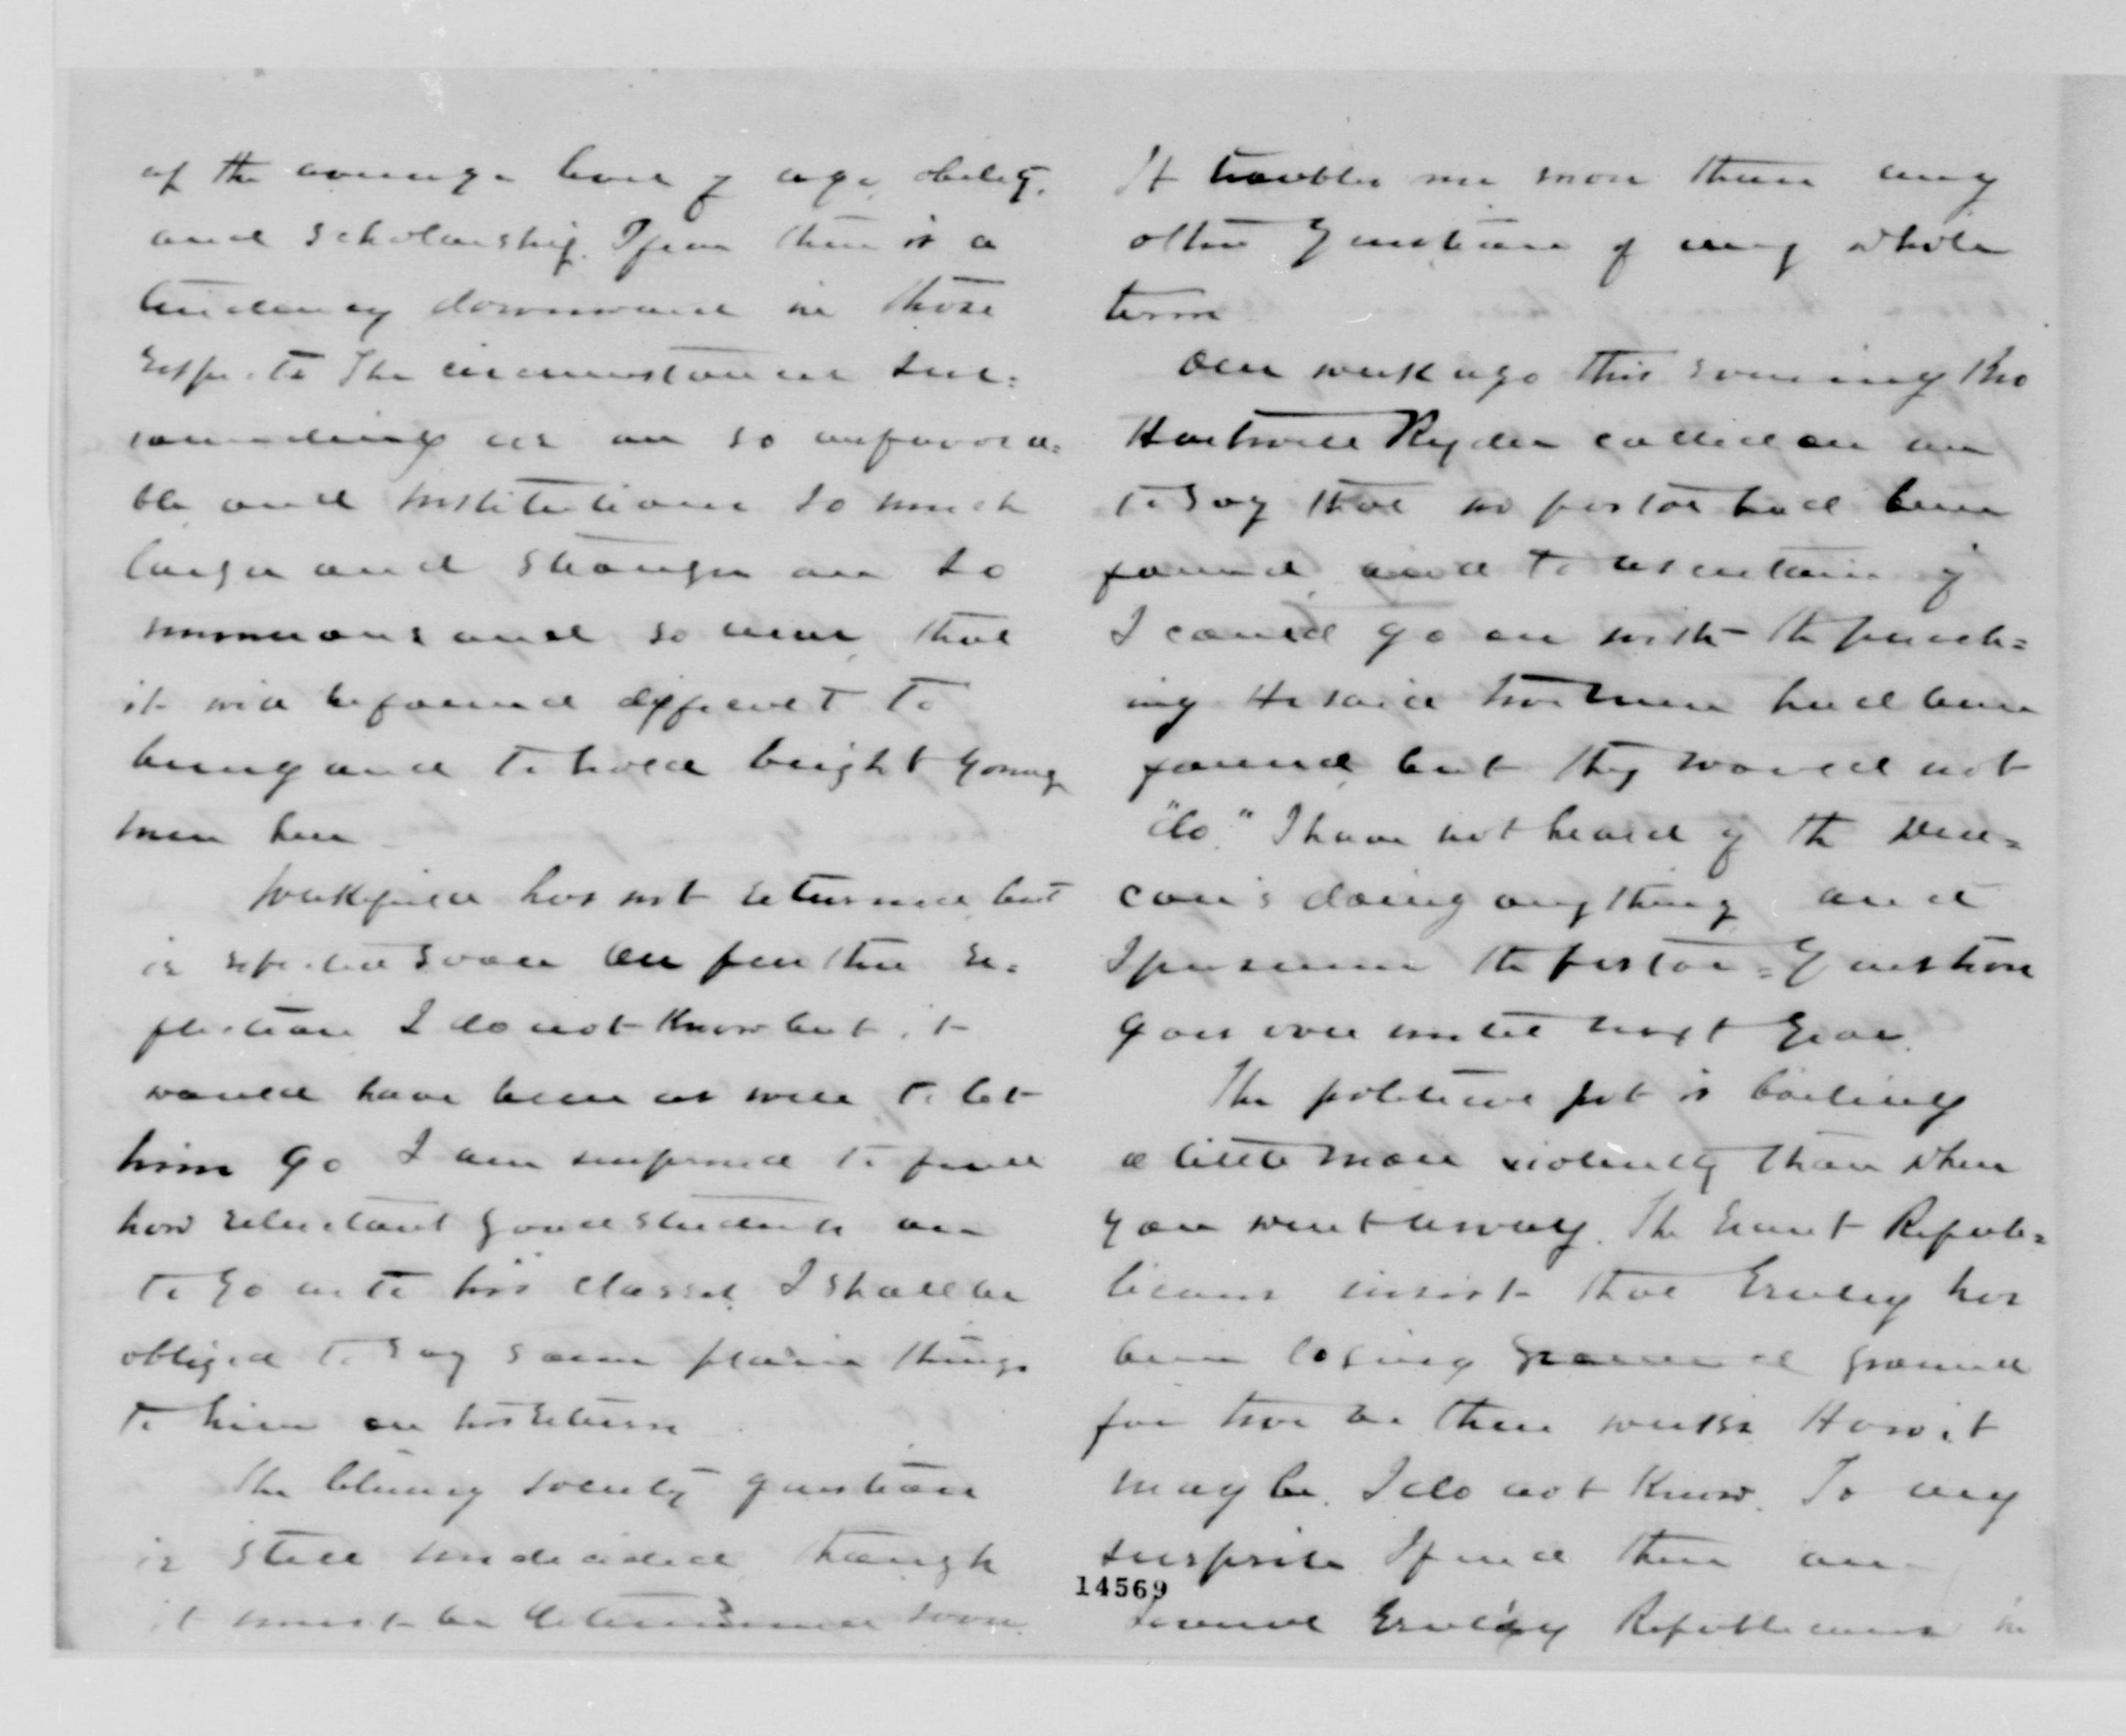 of the average level of age, ability,
and scholarship. I fear there is a
tendency downward in those
respects. The circumstances sur=
rounding us are so unfavora=
ble and institutions so much
larger and stronger are so
numerous and so near, that
it will be found difficult to
bring and to hold bright young
men here
Wakefield has not returned but
is expected soon. On further re=
flection I do not know but it
would have been as well to let
him go. I am surprised to find
how reluctant good students are
to go into his classes. I shall be
obliged to say some plain things
to him on his return
The literary society question
is still undecided, though
it must be determined soon.
It troubles me more than any
other question of my whole
term
One week ago this evening Bro
Hartwell Ryder called on me
to say that no pastor had been
found and to ascertain if
I could go on with the preach=
ing. He said two men had been
found, but they would not
"do." I have not heard of the Dea=
con's doing anything, and
I presume the pastor=question
goes over until next year.
The political pot is boiling
a little more violently than when
you went away. The Grant Repub=
licans insist that Greeley has
been losing ground ground
for two or three weeks. How it
may be, I do not know. To my
surprise I find there are
several Greeley Republicans in
14569